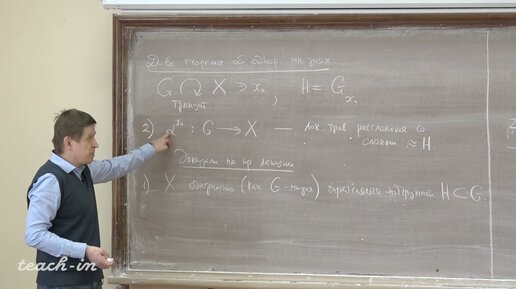 Д-во теоремы об однор. мн-зиях
G ↷ X ∋ x₀, H = G_x₀
транзит
2) α^x₀ : G → X — лок. трив. расслоение со
слоем ≈ H.
Доказали на пр. лекции
1) X однозначно (как G-мн-зие) определяется подгруппой H ⊂ G
teach-in